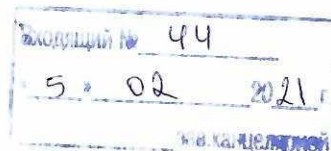 Входящий № 44
5 " 02 2021 г
зав.канцелярией